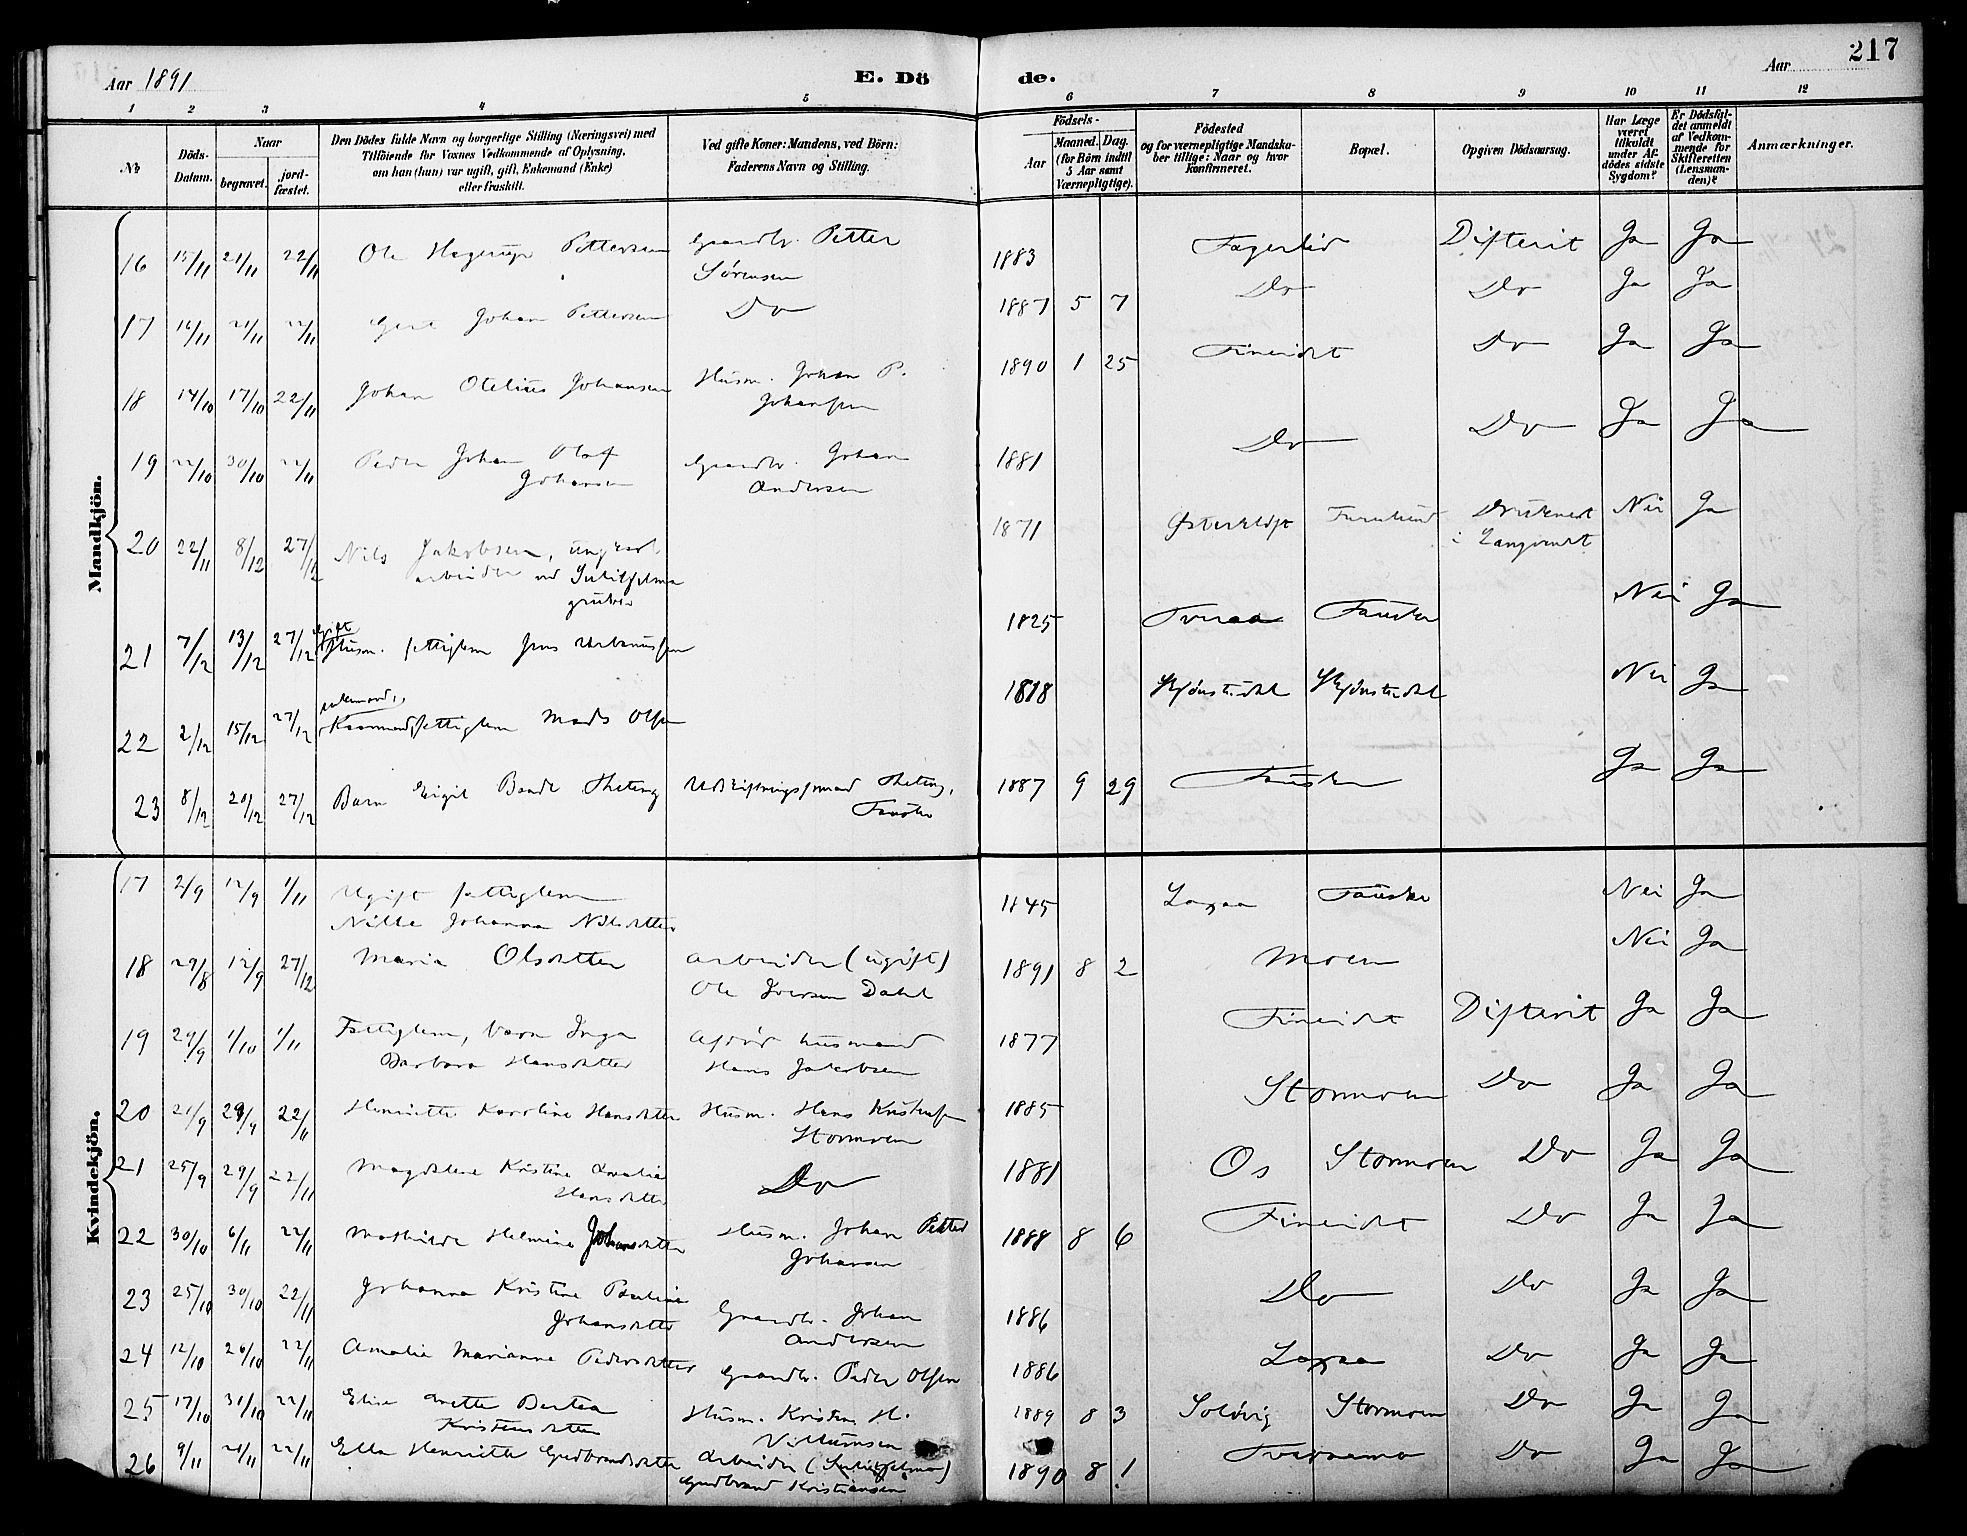 Aar 1891
E. Dö
de.
Aar
217
1 2 3 4 5 6 7 8 9 10 11 12
No
Döds-Datum.
Naar
begravet.
jord-fæstet.
Den Dödes fulde Navn og borgerlige Stilling (Næringsvei) med
Tilföiende for Voxnes Vedkommende af Oplysning,
om han (hun) var ugift, gift, Enkemand (Enke)
eller fraskilt.
Ved gifte Koner: Mandens, ved Börn:
Faderens Navn og Stilling.
Födsels-
Aar
Maaned. Dag.
(for Börn indtil
5 Aar samt
Værnepligtige).
Födested
og for værnepligtige Mandska-
ber tillige: Naar og hvor
konfirmeret.
Bopæl.
Opgiven Dödsaarsag.
Har Læge
været
tilkaldt
under Af-
dödes sidste
Sygdom?
Er Dödsfal-
det anmeldt
af Vedkom-
mende for
Skifteretten
(Lensman-
den)?
Anmærkninger.
Mandkjön.
16 15/11 21/11 22/11 Ole Hagerup Pettersen Gaardbr. Petter 1883 Fagerlid Difterit Ja Ja
Sørensen
17 16/11 21/11 22/11 Gert Johan Pettersen Do 1887 5 7 Do Do Ja Ja
18 14/10 17/10 22/11 Johan Otelius Johansen Husm. Johan P. 1890 1 25 Fineidet Do Ja Ja
Johanssen
19 22/10 30/10 22/11 Peder Johan Olaf Gaardbr. Johan 1881 Do Do Ja Ja
Johansen Andersen
20 22/11 8/12 27/12 Nils Jakobsen, ungkarl 1871 Østerkløft Furulund Druknet Nei Ja
arbeider ved Sulitjelma i Langvandet
gruber
21 7/12 13/12 27/12 gift Husm. fattiglem Jens Urbanussen 1825 Tveraa Fauske Nei Ja
enkemand,
22 2/12 15/12 27/12 Kaarmand fattiglem Mads Olsen 1818 Kjønstadet Kjønstadet Nei Ja
23 8/12 20/12 27/12 Barn Eigil Bondt Theting Udskiftningsformand Theting, 1887 9 29 Fauske Ja Ja
Fauske
Kvindekjön.
17 2/9 12/9 1/11 Ugift fattiglem 1845 Laxaa Fauske Nei Ja
Nille Johanna Nilsdatter
18 29/8 12/9 27/12 Maria Olsdatter Arbeider (ugift) 1891 8 2 Moen Nei Ja
Ole Iversen Dahl
19 29/9 1/10 1/11 Fattiglem, barn Inga Afdød husmand 1877 Fineidet Difterit Ja Ja
Barbara Hansdatter Hans Jakobsen
20 21/9 29/9 22/11 Henriette Karoline Hansdatter Husm. Hans Kristensen 1885 Stormoen Do Ja Ja
Stormoen
21 25/9 29/9 22/11 Magdalene Kristine Amalia Do 1881 Os Stormoen Do Ja Ja
Hansdatter
22 30/10 6/11 22/11 Mathilde Helmine Johansdatter Husm. Johan Petter 1888 8 6 Fineidet Do Ja Ja
Johansen
23 25/10 30/10 22/11 Johanna Kristine Pauline Gaardbr. Johan 1886 Do Do Ja Ja
Johansdatter Andersen
24 12/10 26/10 22/11 Amalie Marianne Pedersdatter Gaardbr. Peder Olsen 1886 Laxaa Do Ja Ja
25 17/10 31/10 22/11 Elise Anette Bertea Husm. Kristen H. 1889 8 3 Solvig Stormoen Do Ja Ja
Kristensdatter Villumsen
26 9/11 21/11 22/11 Ella Henriette Gudbrandsdatter Arbeider (Sulitjelma) 1890 8 1 Tveraamo Do Ja Ja
Gudbrand Kristiansen